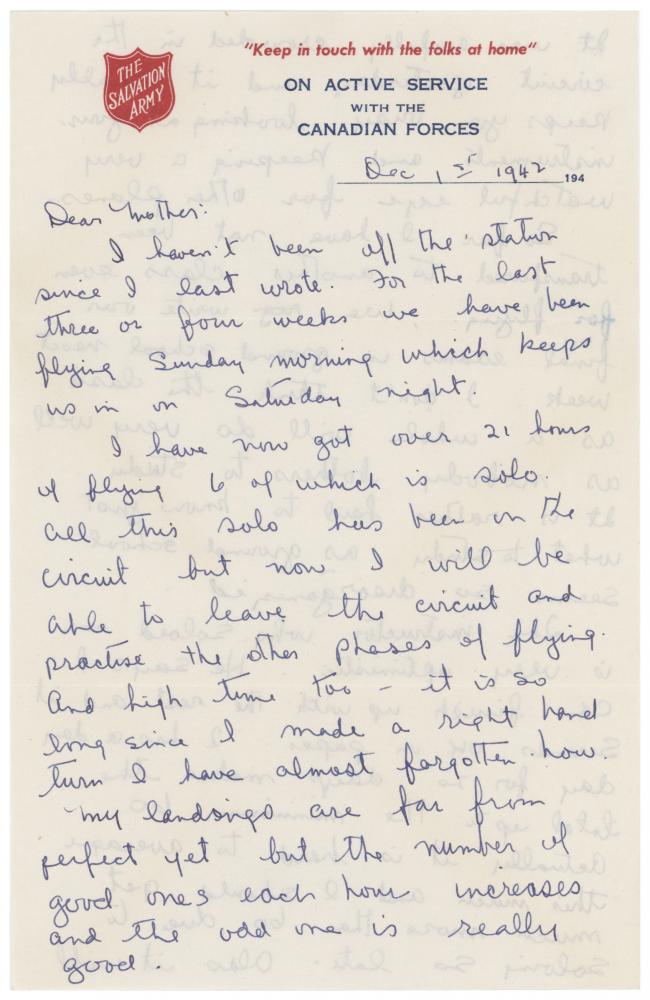 THE
SALVATION
ARMY
"Keep in touch with the folks at home"
ON ACTIVE SERVICE
WITH THE
CANADIAN FORCES
Dec 1st 1942 194
Dear Mother:
I haven't been off the station
since I last wrote. For the last
three or four weeks we have been
flying Sunday morning which keeps
us in on Saturday night.
I have now got over 21 hours
of flying 6 of which is solo.
All this solo has been on the
circuit but now I will be
able to leave the circuit and
practise the other phases of flying.
And high time too – it is so
long since I made a right hand
turn I have almost forgotten how.
My landings are far from
perfect yet but the number of
good ones each hour increases
and the odd one is really
good.